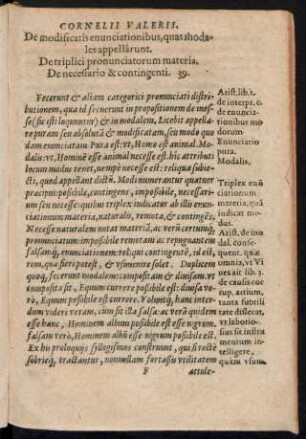 CORNELII VALERII.
De modificatis enunciationibus, quas moda-
les appellârunt.
De triplici pronunciatorum materia.
De necessario & contingenti. 39.
Fecerunt & aliam categorici pronunciati distri-
butionem, qua id secuerunt in propositionem de ines-
se (sic isti loquuntur) & in modalem. Licebit appella-
re puram seu absolutā & modificatam, seu modo quo
dam enunciatam. Pura est: vt, Homo est animal. Mo-
dalis: vt, Hominē esse animal necesse est: hîc attributi
locum modus tenet, nempè necesse est: reliqua subie-
cti, quod appellant dictū. Modi numerantur quatuor
præcipui: possibile, contingens, impossibile, necessari-
um seu necesse: quibus triplex indicatur ab illis enun-
ciationum materia, naturalis, remota, & contingēs.
Necesse naturalem notat materiā, ac verū certumq́;
pronunciatum: impossibile remotam ac repugnantem
falsamq́; enunciationem: reliqui contingentē, id est,
rem, quæ fieri potest, & vsu venire solet. Duplicem
quoq; fecerunt modalem: compositam & diuisam. vt
composita sit, Equum currere possibile est: diuisa ve-
rò, Equum possibile est currere. Voluntq́; hanc inter-
dum videri veram, cum sit illa falsa: ac verā quidem
esse hanc, Hominem album possibile est esse nigrum,
falsam verò, Hominem albū esse nigrum possibile est.
Ex his proloquijs syllogismos construunt, qui si rectè
sobrieq́; tractantur, nonnullam fortassis vtilitatem
F attule-
Arist. lib.
de interpr. c.
de enuncia-
tionibus mo
dorum.
Enunciatio
pura.
Modalis.
Triplex enū
ciationum
materia, quā
indicat mo-
dus.
Arist. de mo
dal. conse-
quent. quæ
omnia, vt Vi
ues ait lib. 3.
de causis cor
rup. artium,
tanta subtili
tate disserit,
vt laborio-
sius sit instru
mentum in-
telligere,
quàm vsum.